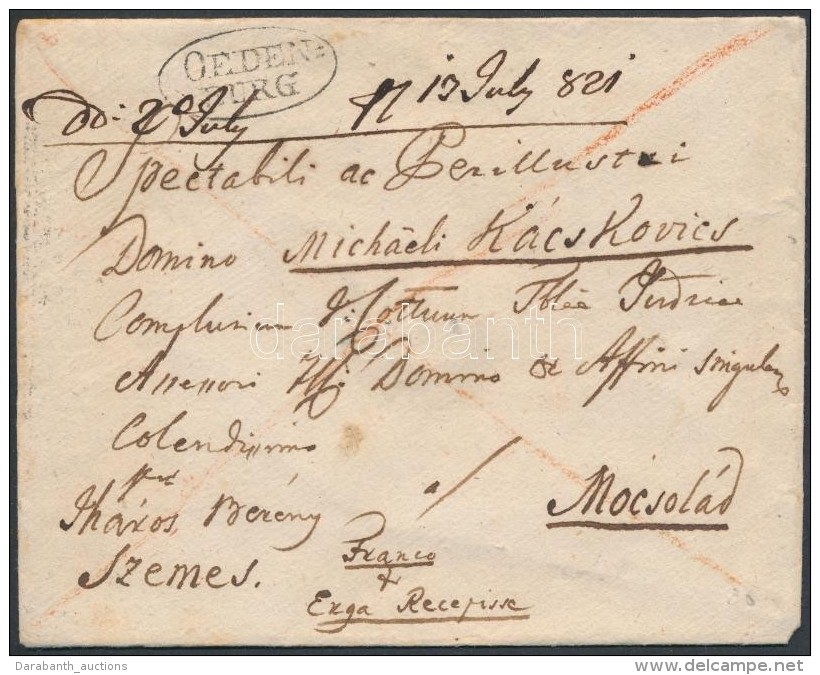 OEDEN=
BURG
dd: 2ª July pl 13 July 821
Spectabili ac Perillustri
Domino Michaeli Kácskovics
Complurium I: Cottuum Tblae Judriae
darabanth
Assessori Domino & Affini singulari
Colendissimo
Iháros Berény
Szemes.
Mocsolád
Franco
Erga Recepisse
Darabanth_auctions
www.delcampe.net